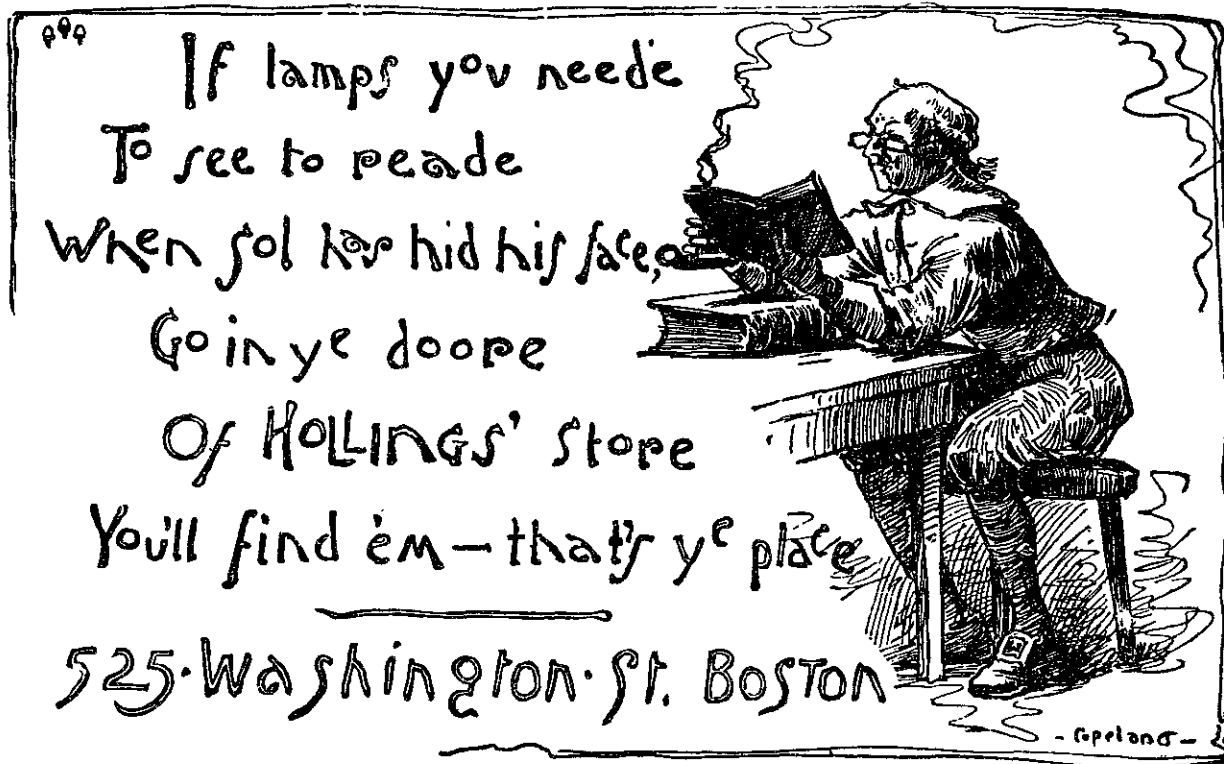 If lamps you neede
To see to reade
When Sol has hid his face,
Go in ye doore
Of HOLLINGS' Store
You'll find 'em — that's ye place
525 · Washington · St. BOSTON
- Copeland -